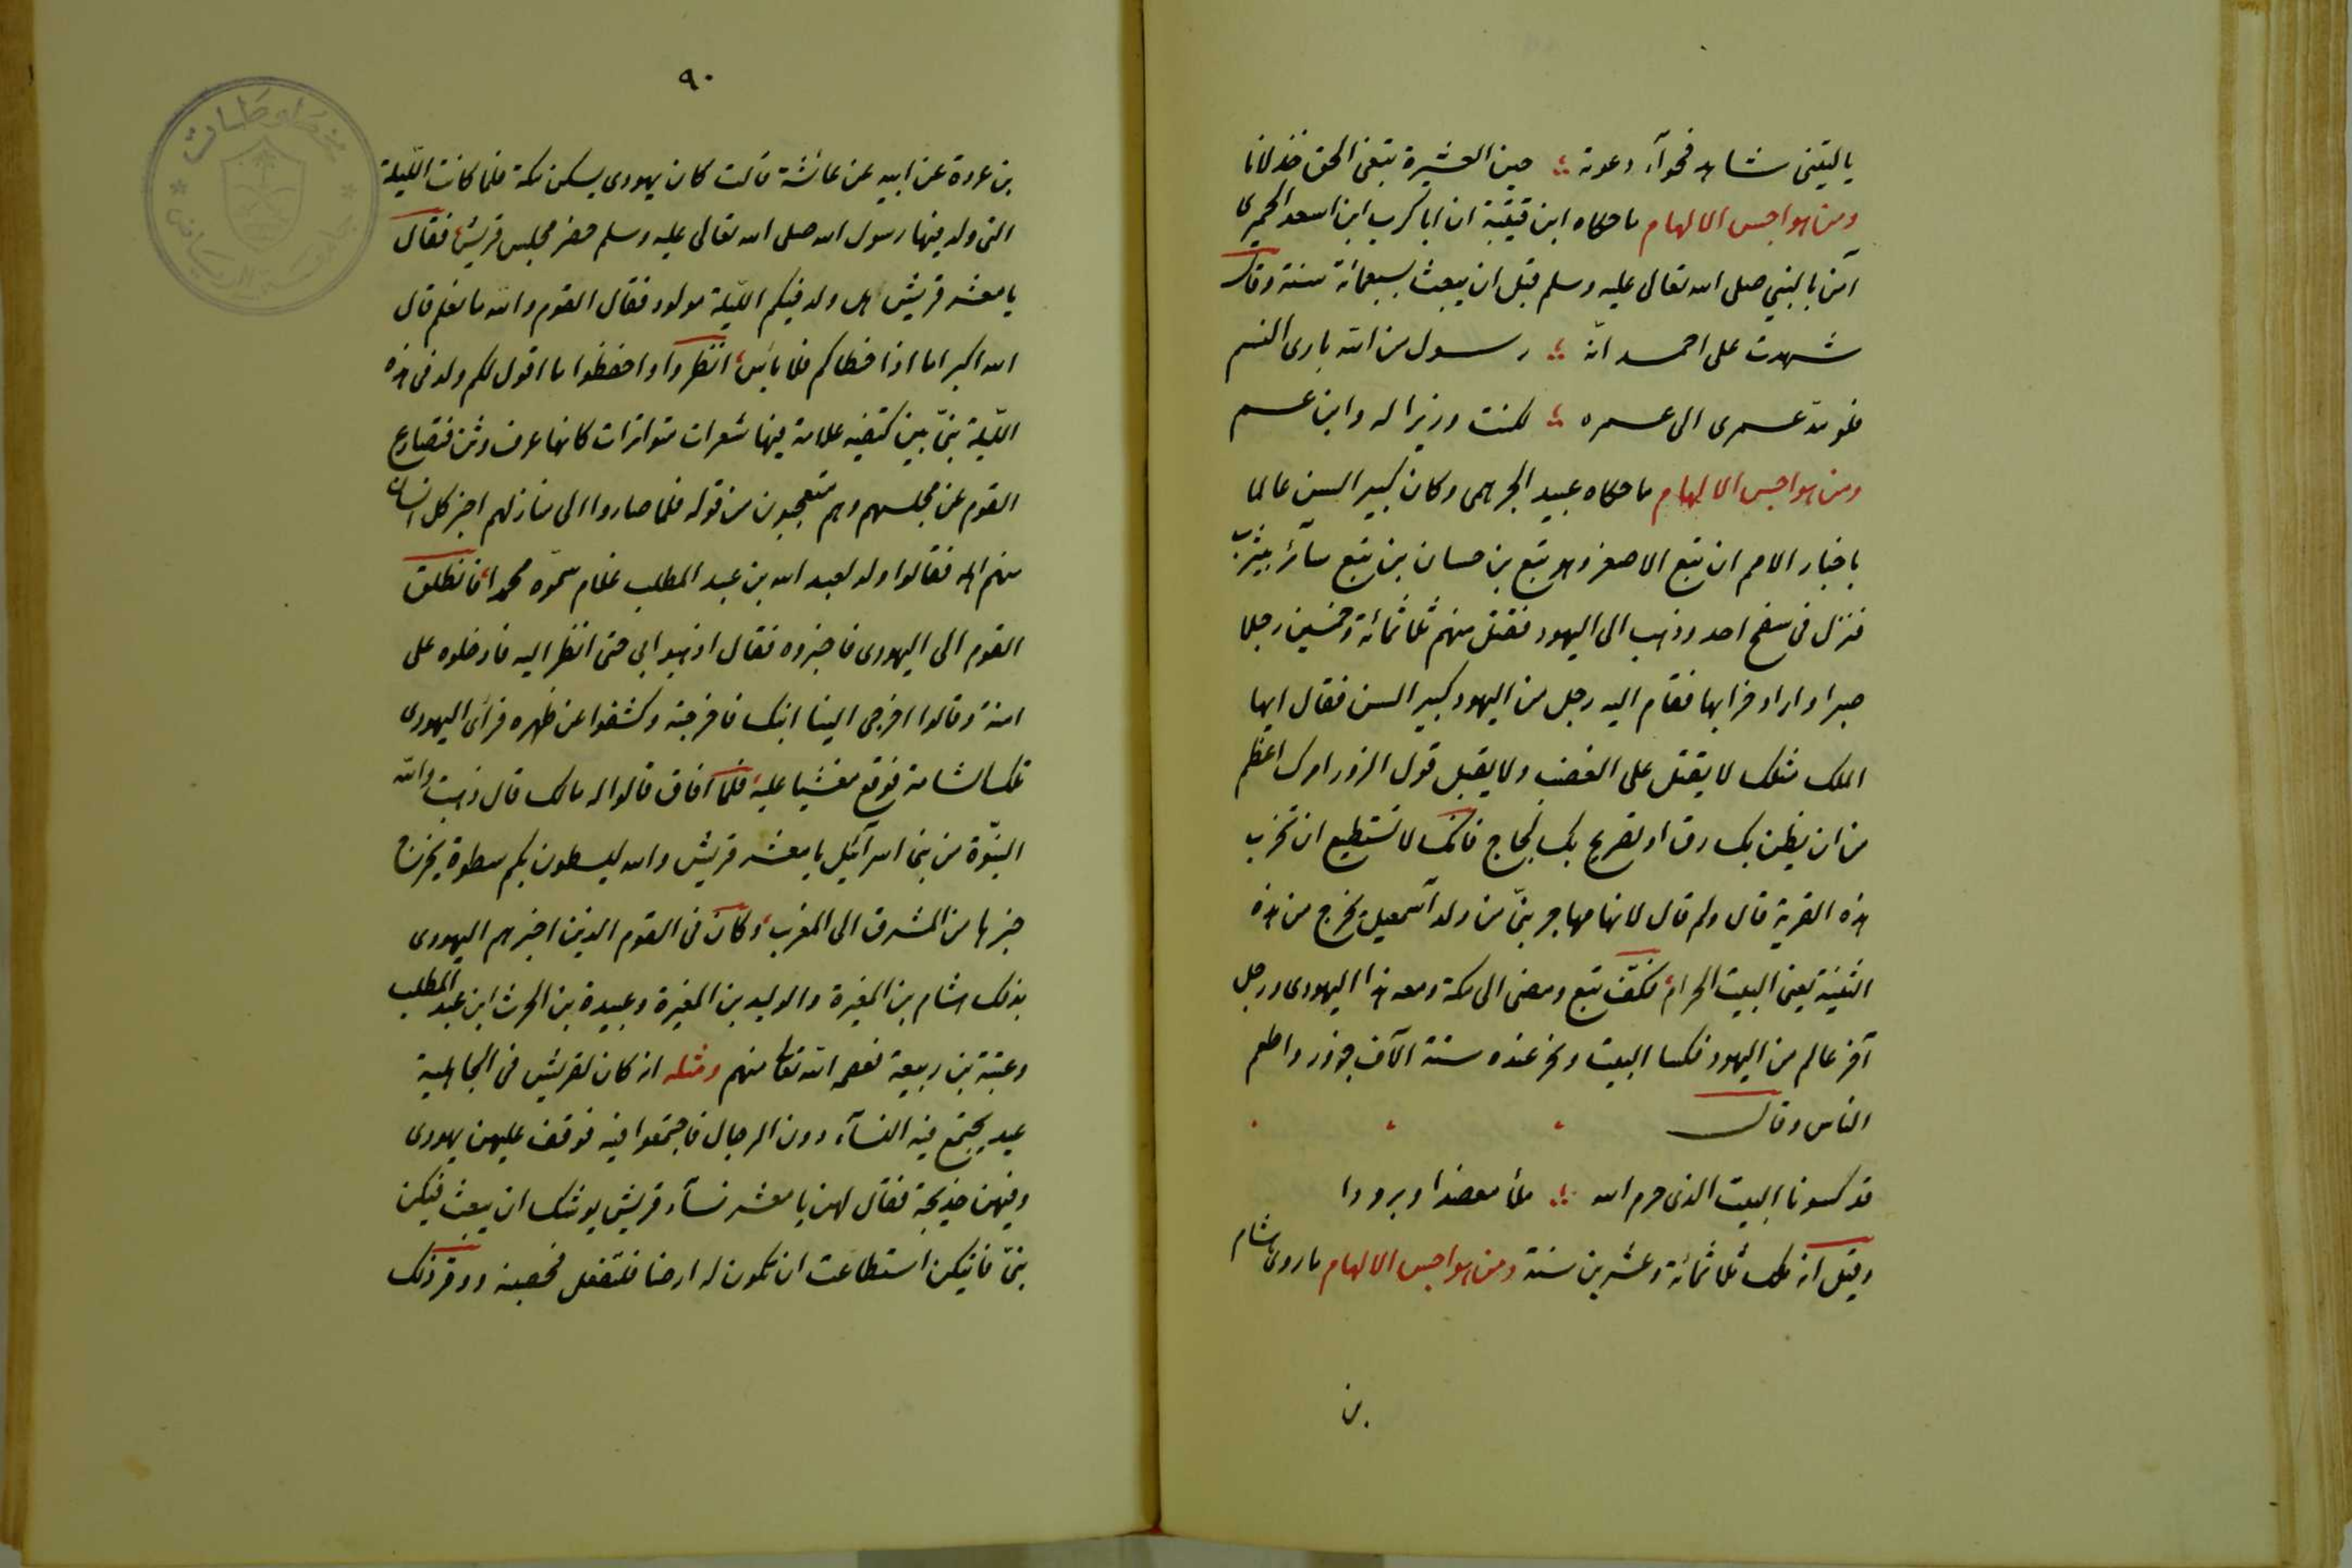 ياليتني شاهد فحوآء دعوته ؛ حين العشيرة تبغى الحق خذلانا
ومن هواجس الالهام ماحكاه ابن قتيبة ان ابا كرب ابن اسعد الحميرى
آمن بالنبي صلى الله تعالى عليه وسلم قبل ان يبعث بسبعمائة سنة وقال
شهدت على احمد انّه ؛ رسول من الله بارى النسم
فلو مدّ عمرى الى عمره ؛ لكنت وزيرا له وابن عم
ومن هواجس الالهام ماحكاه عبيد الجرهمى وكان كبير السن عالما
باخبار الامم ان تبع الاصغر وهو تبع بن حسان بن تبع سائر بيثرب
فنزل فى سفح احد وذهب الى اليهود فقتل منهم ثلاثمائة وخمسين رجلا
صبرا واراد خرابها فقام اليه رجل من اليهود كبير السن فقال ايها
الملك مثلك لا يقتل على الغضب ولا يقبل قول الزور امرك اعظم
من ان يطير بك رق او تصريح بك لجاج فانك لا تستطيع ان تخرب
هذه القرية قال ولم قال لانها مهاجر نبىّ من ولد اسمعيل يخرج من هذه
الثنية يعنى البيت الحرام فكفّ تبع ومضى الى مكة ومعه هذا اليهودى ورجل
آخر عالم من اليهود فكسا البيت ونحر عنده ستة آلاف جزور واطعم
الناس وقال
قد كسونا البيت الذى حرم الله ؛ ملأ معضدا وبرودا
وقيل انه ملك ثلاثمائة وعشرين سنة ومن هواجس الالهام ماروى هشام
بن
٩٠
بن عروة عن ابيه عن عائشة قالت كان يهودى يسكن مكة فلما كانت الليلة
التى ولد فيها رسول الله صلى الله تعالى عليه وسلم حضر مجلس قريش فقال
يا معشر قريش هل ولد فيكم الليلة مولود فقال القوم والله ما نعلم قال
الله اكبر اما اذا خطاكم فلا باس انظروا واحفظوا ما اقول لكم ولد فى هذه
الليلة نبىّ بين كتفيه علامة فيها شعرات متواترات كانها عرف وثن فتصادع
القوم عن مجلسهم وهم متعجبون من قوله فلما صاروا الى منازلهم اخبر كل انسان
منهم اهله فقالوا ولد لعبد الله بن عبد المطلب غلام سمّوه محمدا فانطلق
القوم الى اليهودى فاخبروه فقال اذهبوا بي حتى انظر اليه فادخلوه على
امنة وقالوا اخرجى الينا ابنك فاخرجته وكشفوا عن ظهره فرأى اليهودى
تلك الشامة فوقع مغشيا عليه فلما افاق قالوا له مالك قال ذهبت والله
النبوّة من بنى اسرآئيل يا معشر قريش والله ليسطون بكم سطوة يخرج
خبرها من المشرق الى المغرب وكان فى القوم الذين اخبرهم اليهودى
بذلك هشام بن المغيرة والوليد بن المغيرة وعبيدة بن الحرث ابن عبد المطلب
وعتبة بن ربيعة فعصمه الله تعالى منهم ومثله انه كان لقريش فى الجاهلية
عيد يجتمع فيه النسآء دون الرجال فاجتمعوا فيه فوقف عليهن يهودى
وفيهن خديجة فقال لهن يا معشر نسآء قريش يوشك ان يبعث فيكن
نبىّ فايتكن استطاعت ان تكون له ارضا فلتفعل فحصبنه ووقر ذلك